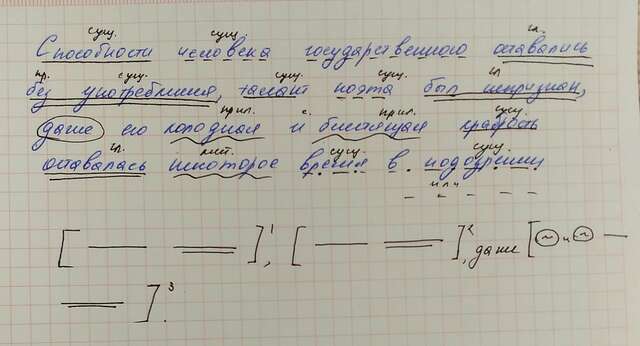 сущ. сущ. гл.
Способности человека государственного оставались
пр. сущ. сущ. сущ. гл
без употребления, талант поэта был непризнан,
прил. с. прил. сущ.
даже его холодная и блестящая храбрость
гл. мест. сущ. сущ.
оставалась некоторое время в подозрении
или
[ ]¹, [ ]², даже [ и
]³.